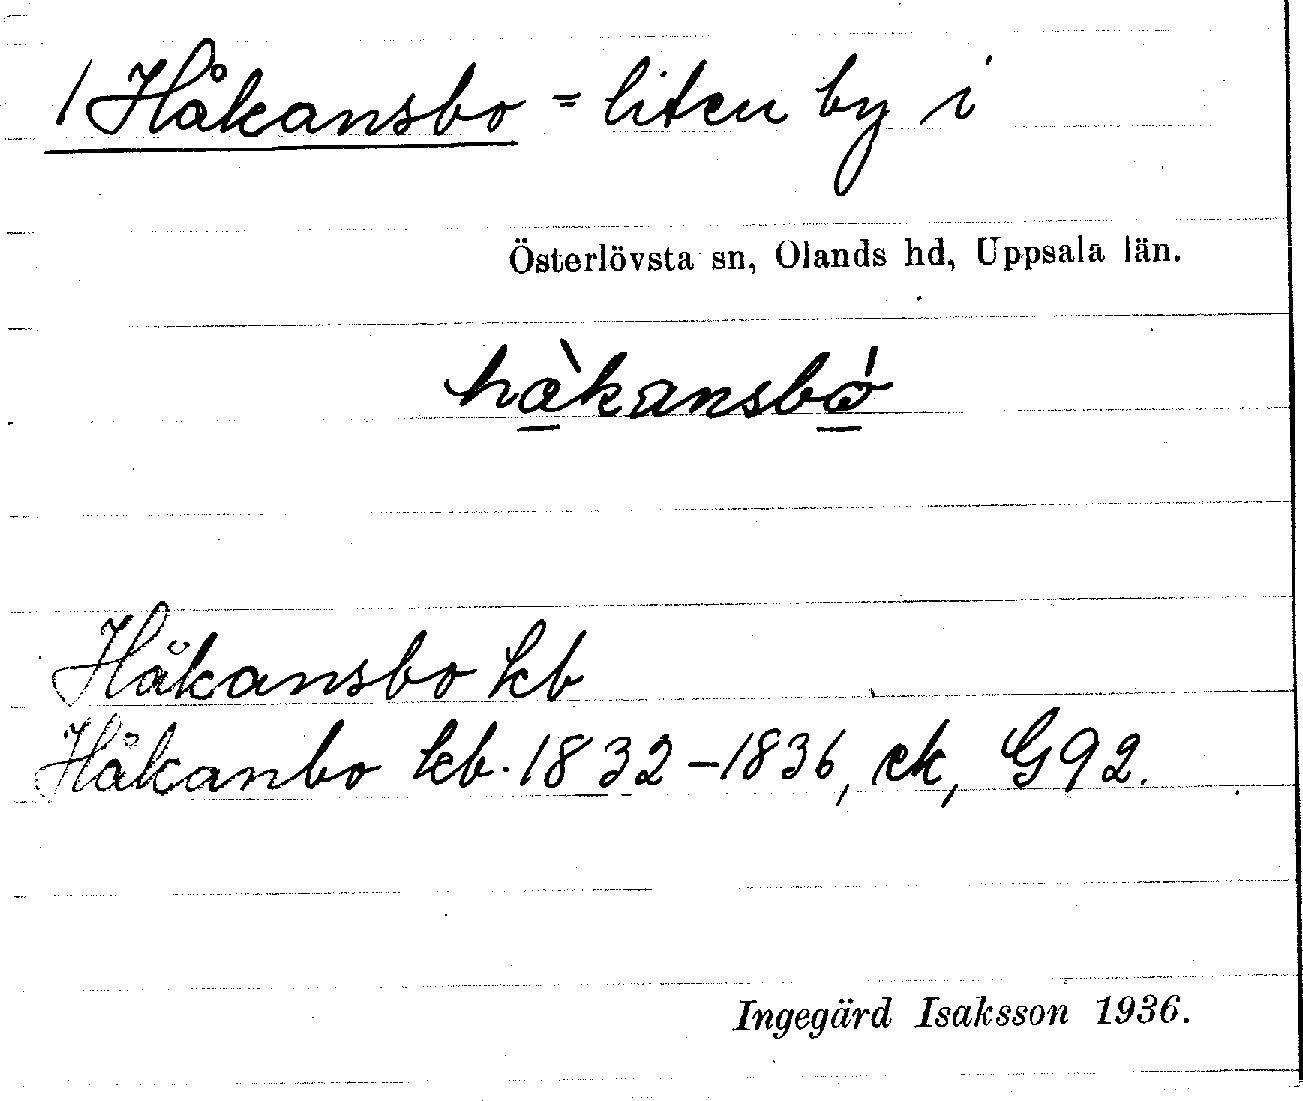 / Håkansbo = liten by i
Österlövsta sn, Olands hd, Uppsala län.
hàkansbó
Håkansbo kb
Håkanbo kb. 1832-1836, ek, G92.
Ingegärd Isaksson 1936.